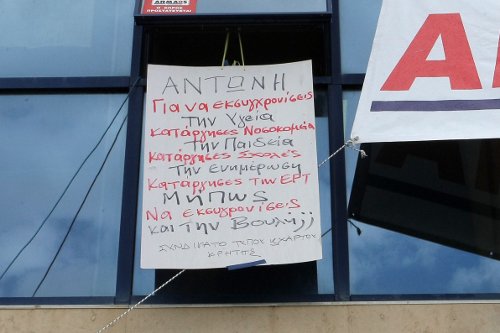 ΑΝΤΩΝΗ
Για να εκσυγχρονίσεις
την Υγεία
κατάργησες Νοσοκομεία
την Παιδεία
κατάργησες Σχολές
την ενημέρωση
κατάργησες την ΕΡΤ
Μήπως
Να εκσυγχρονίσεις
και την Βουλή;;
ΣΥΝΔΙΚΑΤΟ ΤΥΠΟΥ ΧΑΡΤΟΥ
ΚΡΗΤΗΣ